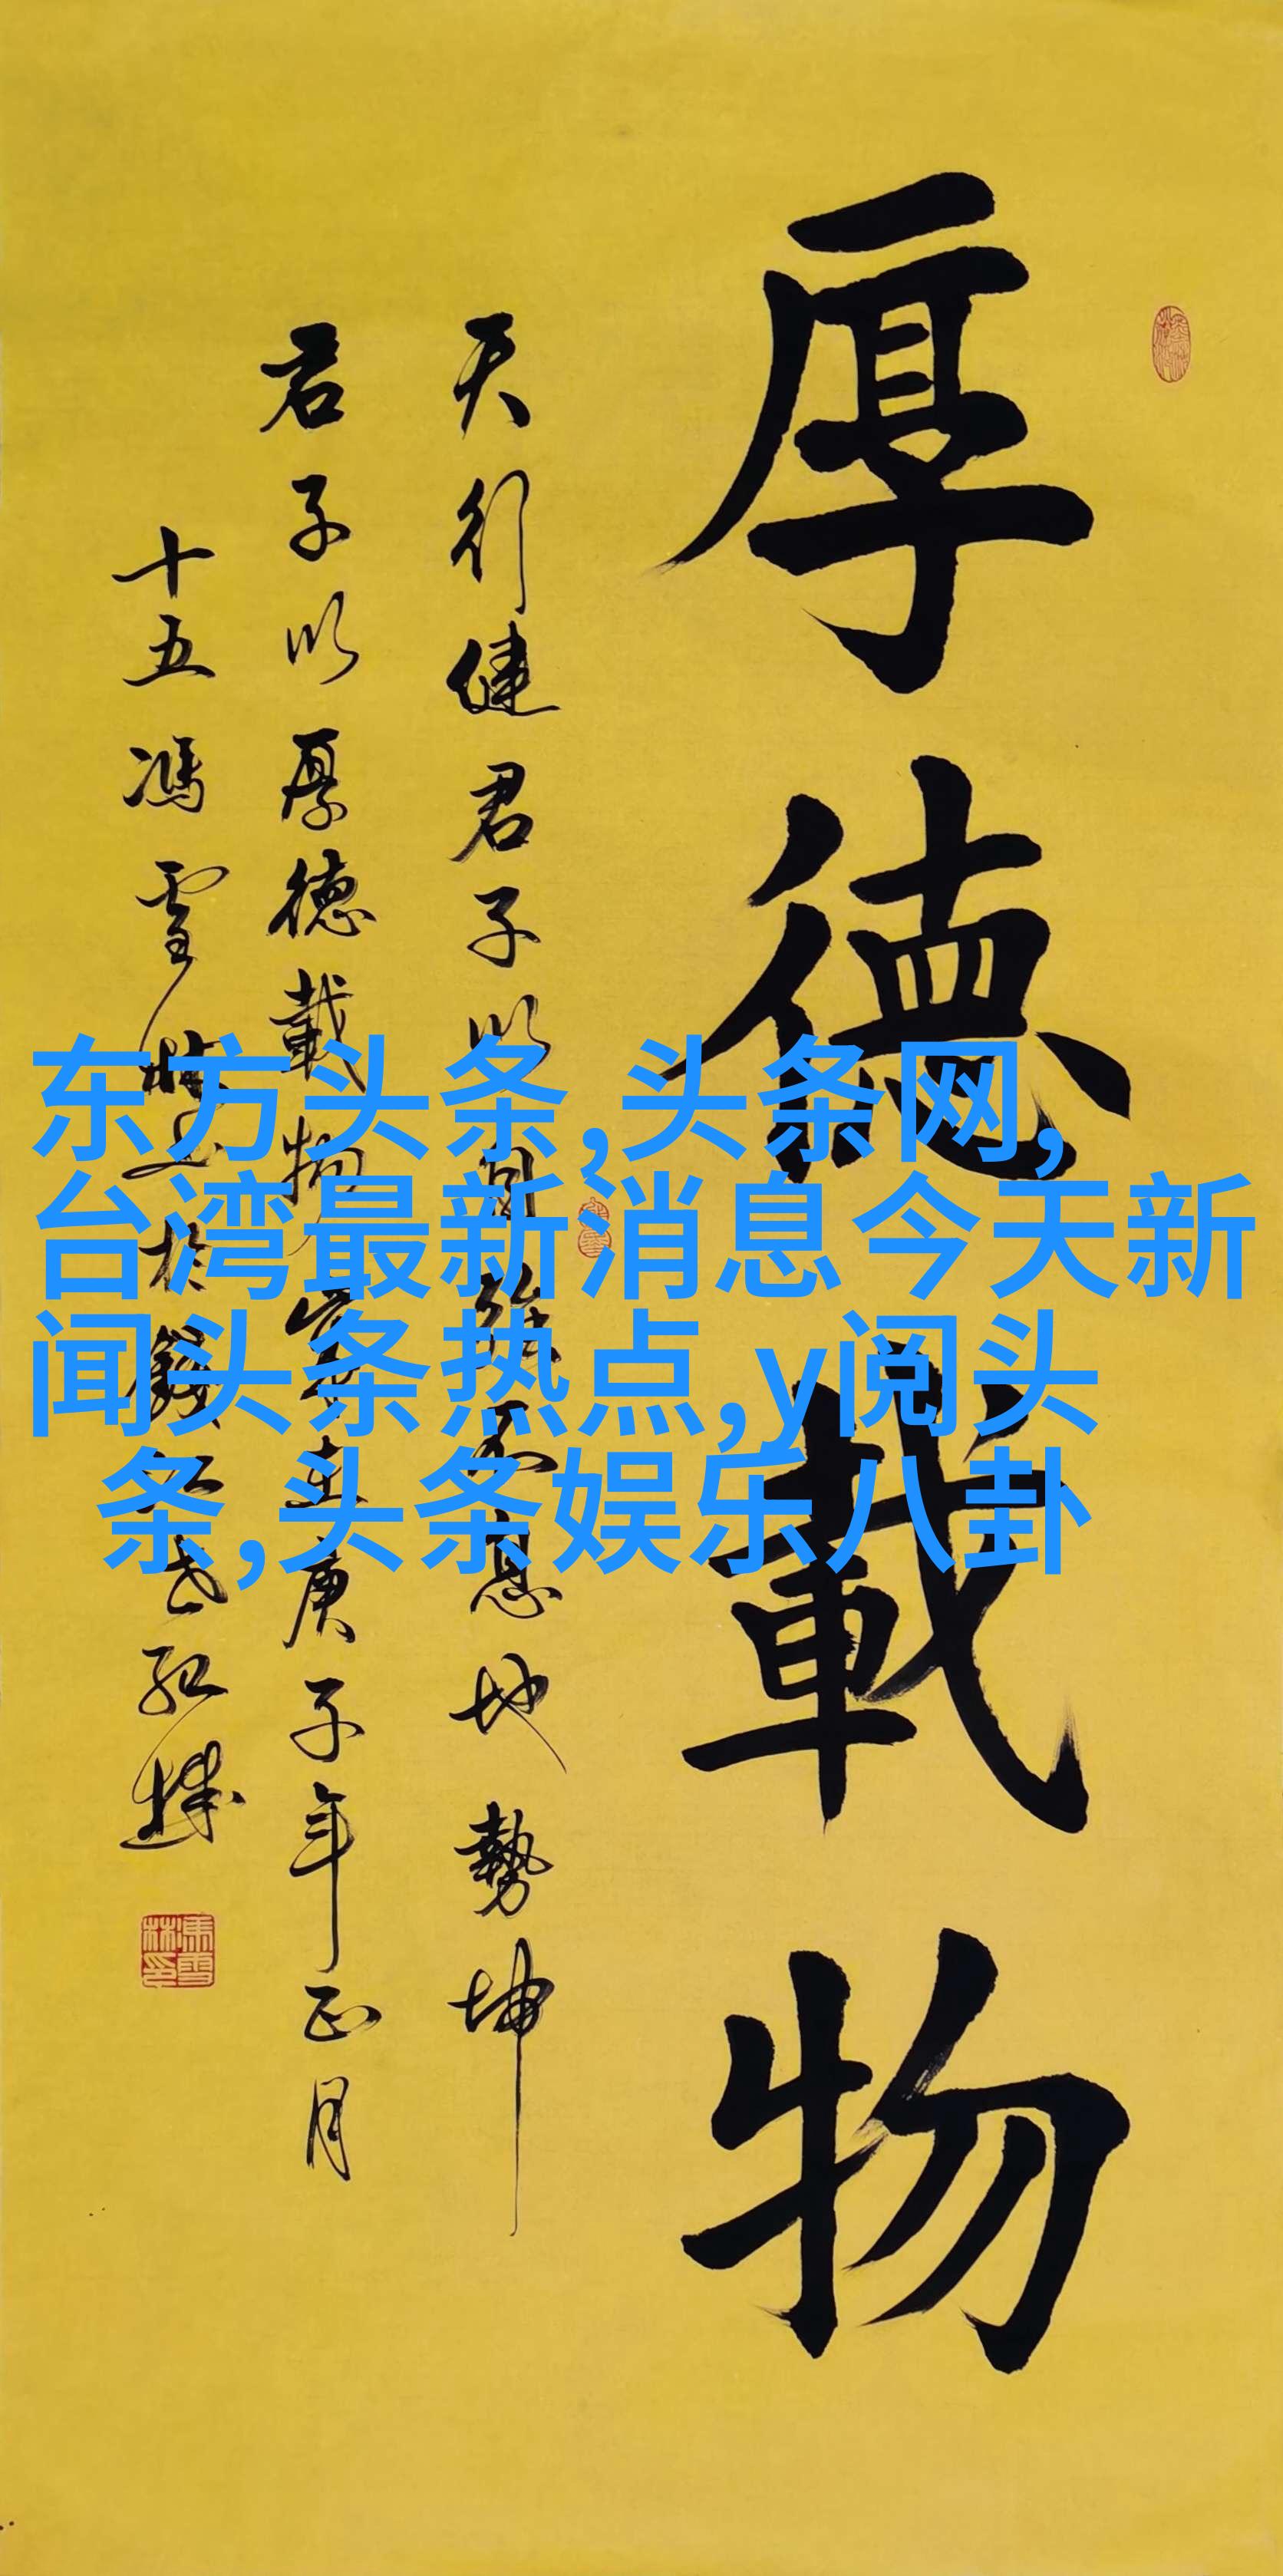 厚德載物
天行健君子以自強不息地勢坤
君子以厚德載物
庚子年正月
十五馮雪林
东方头条,头条网,
台湾最新消息今天新
闻头条热点,y阅头
条,头条娱乐八卦